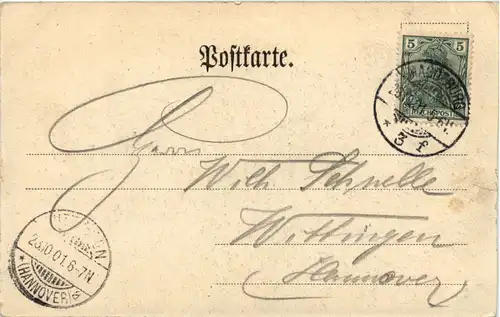 Postkarte.
5 5
* 3 f
Herrn
Wilh. Schnelle
Wittingen
Hannover
23.10.01.6-7N
* (HANNOVER) *